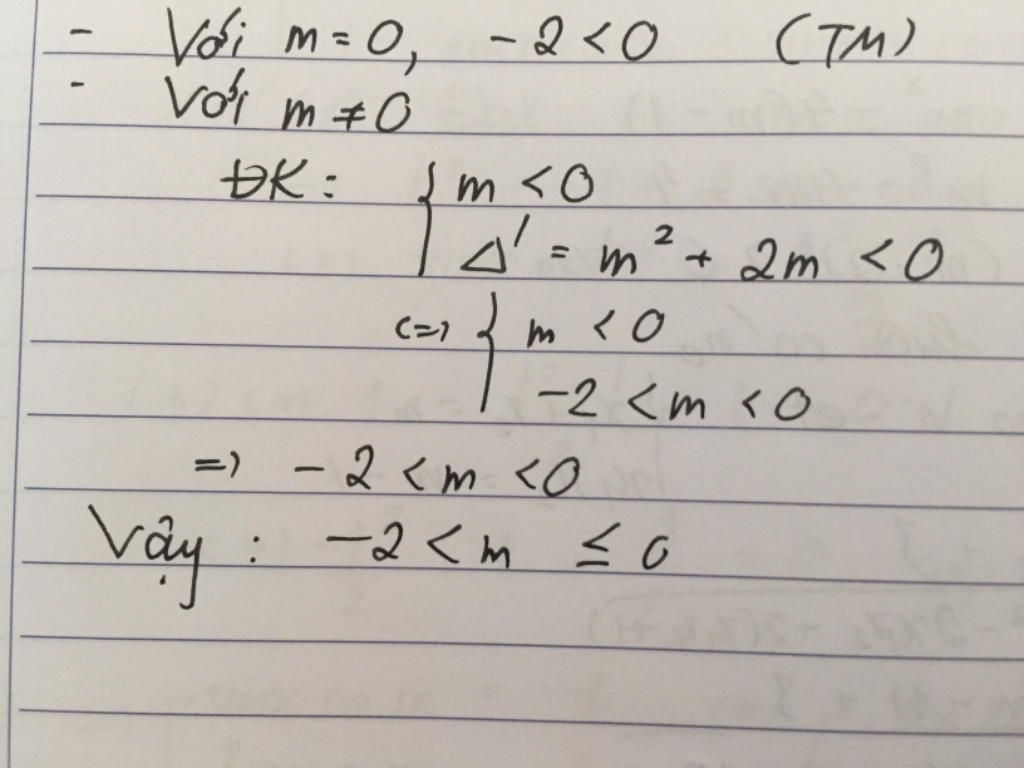 - Với m = 0, -2 < 0 (TM)
- Với m ≠ 0
ĐK: { m < 0
Δ' = m² + 2m < 0
<=> { m < 0
-2 < m < 0
=> -2 < m < 0
Vậy: -2 < m ≤ 0